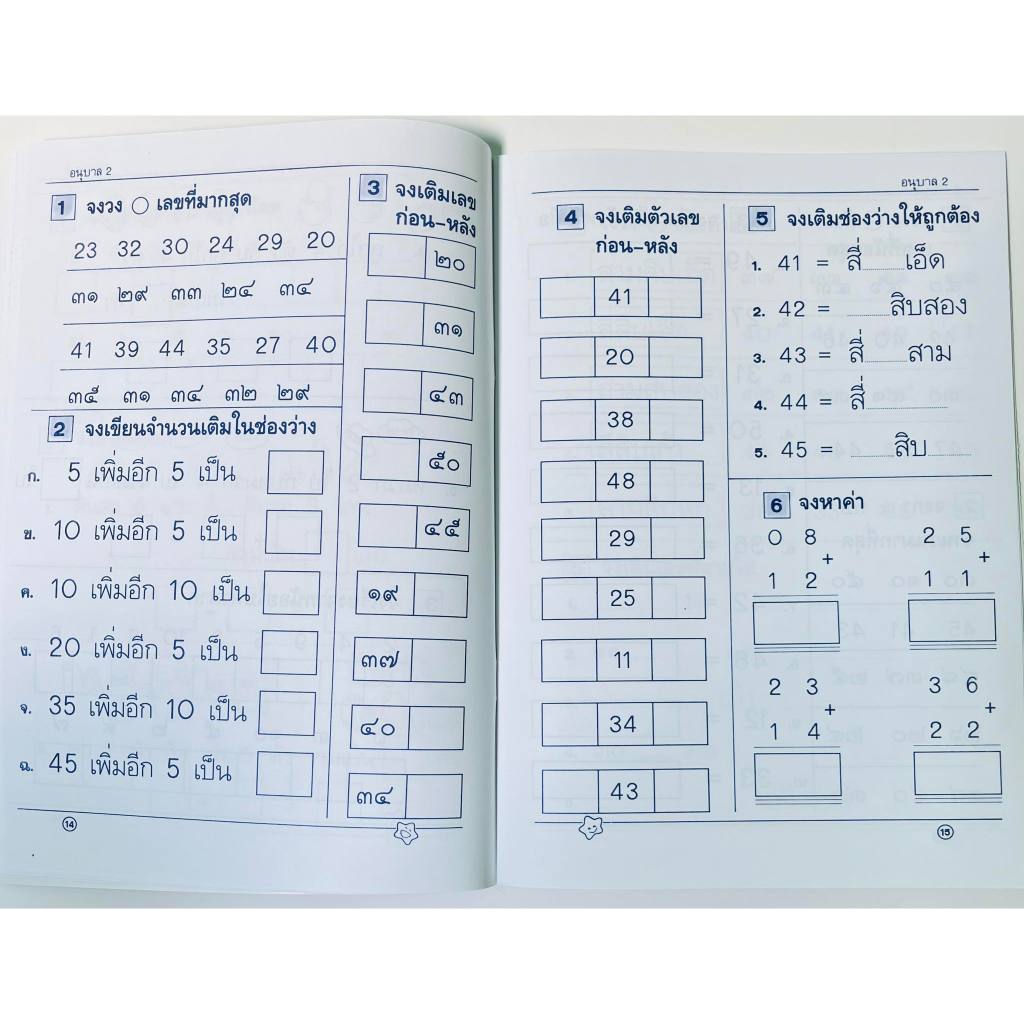 อนุบาล 2
1 จงวง ○ เลขที่มากสุด
23 32 30 24 29 20
๓๑ ๒๙ ๓๓ ๒๔ ๓๔
41 39 44 35 27 40
๓๕ ๓๑ ๓๔ ๓๒ ๒๙
2 จงเขียนจำนวนเติมในช่องว่าง
ก. 5 เพิ่มอีก 5 เป็น
ข. 10 เพิ่มอีก 5 เป็น
ค. 10 เพิ่มอีก 10 เป็น
ง. 20 เพิ่มอีก 5 เป็น
จ. 35 เพิ่มอีก 10 เป็น
ฉ. 45 เพิ่มอีก 5 เป็น
3 จงเติมเลข
ก่อน-หลัง
๒๐
๓๑
๔๓
๕๐
๔๕
๑๙
๓๗
๔๐
๓๔
14
อนุบาล 2
4 จงเติมตัวเลข
ก่อน-หลัง
41
20
38
48
29
25
11
34
43
5 จงเติมช่องว่างให้ถูกต้อง
1. 41 = สี่........เอ็ด
2. 42 = ........สิบสอง
3. 43 = สี่........สาม
4. 44 = สี่........
5. 45 = ........สิบ........
6 จงหาค่า
0 8 2 5
+ +
1 2 1 1
2 3 3 6
+ +
1 4 2 2
15